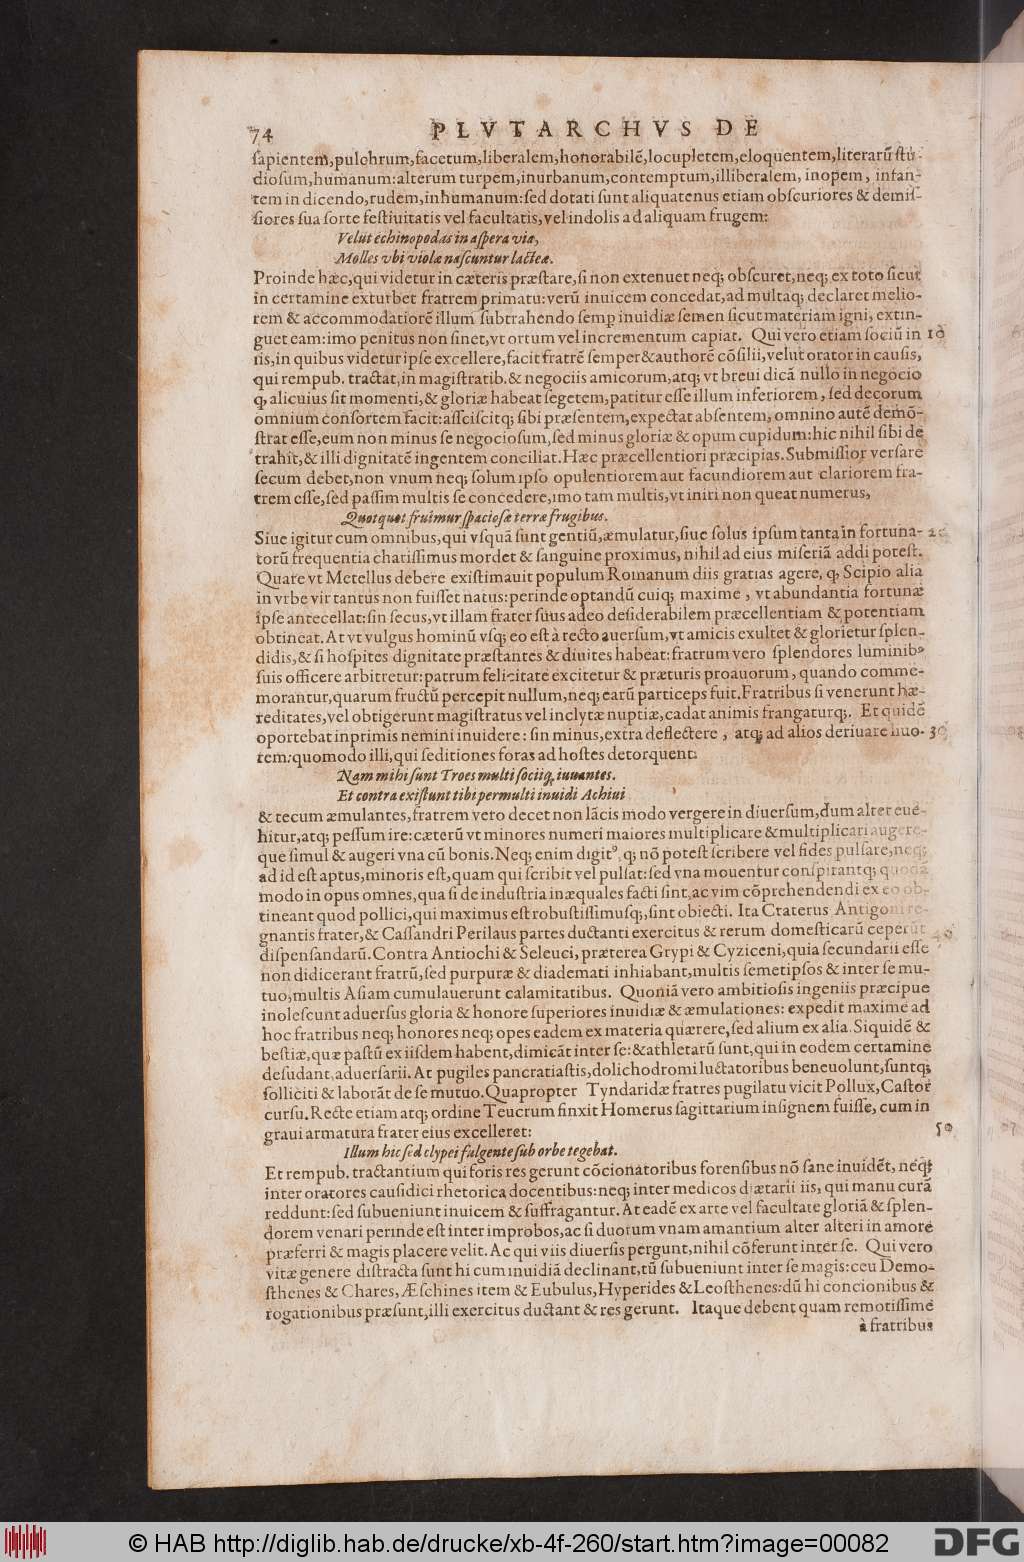 74 PLVTARCHVS DE
ſapientem,pulchrum,facetum,liberalem,honorabilē,locupletem,eloquentem,literarū ſtu-
dioſum,humanum:alterum turpem,inurbanum,contemptum,illiberalem, inopem, infan-
tem in dicendo,rudem,inhumanum:ſed dotati ſunt aliquatenus etiam obſcuriores & demiſ-
ſiores ſua ſorte feſtiuitatis vel facultatis,vel indolis ad aliquam frugem:
Velut echinopodas in aſpera via,
Molles vbi violæ naſcuntur lacteæ.
Proinde hæc,qui videtur in cæteris præſtare,ſi non extenuet neq; obſcuret,neq; ex toto ſicut
in certamine exturbet fratrem primatu:verū inuicem concedat,ad multaq; declaret melio-
rem & accommodatiorē illum ſubtrahendo ſemp inuidiæ ſemen ſicut materiam igni, extin-
guet eam:imo penitus non ſinet,vt ortum vel incrementum capiat. Qui vero etiam ſociū in 10
iis,in quibus videtur ipſe excellere,facit fratrē ſemper&authorē cōſilii,velut orator in cauſis,
qui rempub. tractat,in magiſtratib.& negociis amicorum,atq; vt breui dicā nullo in negocio
q, alicuius ſit momenti,& gloriæ habeat ſegetem,patitur eſſe illum inferiorem, ſed decorum
omnium conſortem facit:aſſciſcitq; ſibi præſentem,expectat abſentem, omnino autē demō-
ſtrat eſſe,eum non minus ſe negocioſum,ſed minus gloriæ & opum cupidum:hic nihil ſibi de
trahit,& illi dignitatē ingentem conciliat.Hæc præcellentiori præcipias.Submiſſior verſare
ſecum debet,non vnum neq; ſolum ipſo opulentiorem aut facundiorem aut clariorem fra-
trem eſſe,ſed paſſim multis ſe concedere,imo tam multis,vt iniri non queat numerus,
Quotquot fruimur ſpacioſæ terræ frugibus.
Siue igitur cum omnibus,qui vſquā ſunt gentiū,æmulatur,ſiue ſolus ipſum tanta in fortuna- 20
torū frequentia chariſſimus mordet & ſanguine proximus, nihil ad eius miſeriā addi poteſt.
Quare vt Metellus debere exiſtimauit populum Romanum diis gratias agere, q; Scipio alia
in vrbe vir tantus non fuiſſet natus:perinde optandū cuiq; maxime, vt abundantia fortunæ
ipſe antecellat:ſin ſecus,vt illam frater ſuus adeo deſiderabilem præcellentiam & potentiam
obtineat.At vt vulgus hominū vſq; eo eſt à recto auerſum,vt amicis exultet & glorietur ſplen-
didis,& ſi hoſpites dignitate præſtantes & diuites habeat:fratrum vero ſplendores luminibꝰ
ſuis officere arbitretur:patrum felicitate excitetur & præturis proauorum, quando comme-
morantur,quarum fructū percepit nullum,neq; earū particeps fuit.Fratribus ſi venerunt hæ-
reditates,vel obtigerunt magiſtratus vel inclytæ nuptiæ,cadat animis frangaturq;. Et quidē
oportebat inprimis nemini inuidere: ſin minus,extra deflectere, atq; ad alios deriuare liuo- 30
rem:quomodo illi,qui ſeditiones foras ad hoſtes detorquent:
Nam mihi ſunt Troes multi ſociiq, iuuantes.
Et contra exiſtunt tibi permulti inuidi Achiui
& tecum æmulantes,fratrem vero decet non lācis modo vergere in diuerſum,dum alter eue-
hitur,atq; peſſum ire:cæterū vt minores numeri maiores multiplicare & multiplicari augere-
que ſimul & augeri vna cū bonis.Neq; enim digitꝰ, q; nō poteſt ſcribere vel fides pulſare,neq;
ad id eſt aptus,minoris eſt,quam qui ſcribit vel pulſat:ſed vna mouentur conſpirantq; quodā
modo in opus omnes,qua ſi de induſtria inæquales facti ſint,ac vim cōprehendendi ex eo ob-
tineant quod pollici,qui maximus eſt robuſtiſſimuſq;,ſint obiecti. Ita Craterus Antigoni re-
gnantis frater,& Caſſandri Perilaus partes ductanti exercitus & rerum domeſticarū ceperūt 40
diſpenſandarū.Contra Antiochi & Seleuci, præterea Grypi & Cyziceni,quia ſecundarii eſſe
non didicerant fratrū,ſed purpuræ & diademati inhiabant,multis ſemetipſos & inter ſe mu-
tuo,multis Aſiam cumulauerunt calamitatibus. Quoniā vero ambitioſis ingeniis præcipue
inoleſcunt aduerſus gloria & honore ſuperiores inuidiæ & æmulationes: expedit maxime ad
hoc fratribus neq; honores neq; opes eadem ex materia quærere,ſed alium ex alia.Siquidē &
beſtiæ,quæ paſtū ex iiſdem habent,dimicāt inter ſe:&athletarū ſunt,qui in eodem certamine
deſudant,aduerſarii.At pugiles pancratiaſtis,dolichodromi luctatoribus beneuolunt,ſuntq;
ſolliciti & laborāt de ſe mutuo.Quapropter Tyndaridæ fratres pugilatu vicit Pollux,Caſtor
curſu.Recte etiam atq; ordine Teucrum finxit Homerus ſagittarium inſignem fuiſſe, cum in
graui armatura frater eius excelleret: 50
Illum hic ſed clypei fulgente ſub orbe tegebat.
Et rempub. tractantium qui foris res gerunt cōcionatoribus forenſibus nō ſane inuidēt, neq;
inter oratores cauſidici rhetorica docentibus:neq; inter medicos diætarii iis, qui manu curā
reddunt:ſed ſubueniunt inuicem & ſuffragantur.At eadē ex arte vel facultate gloriā & ſplen-
dorem venari perinde eſt inter improbos,ac ſi duorum vnam amantium alter alteri in amore
præferri & magis placere velit.Ac qui viis diuerſis pergunt,nihil cōferunt inter ſe. Qui vero
vitæ genere diſtracta ſunt hi cum inuidiā declinant,tū ſubueniunt inter ſe magis:ceu Demo-
ſthenes & Chares, Æſchines item & Eubulus,Hyperides & Leoſthenes:dū hi concionibus &
rogationibus præſunt,illi exercitus ductant & res gerunt. Itaque debent quam remotiſſime
à fratribus
© HAB http://diglib.hab.de/drucke/xb-4f-260/start.htm?image=00082
DFG